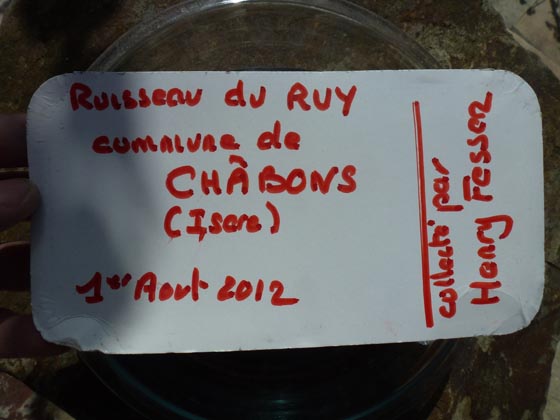 Ruisseau du RUY
commune de
CHÂBONS
(Isere)
1er Aout 2012
collecté par
Henry Fessoz